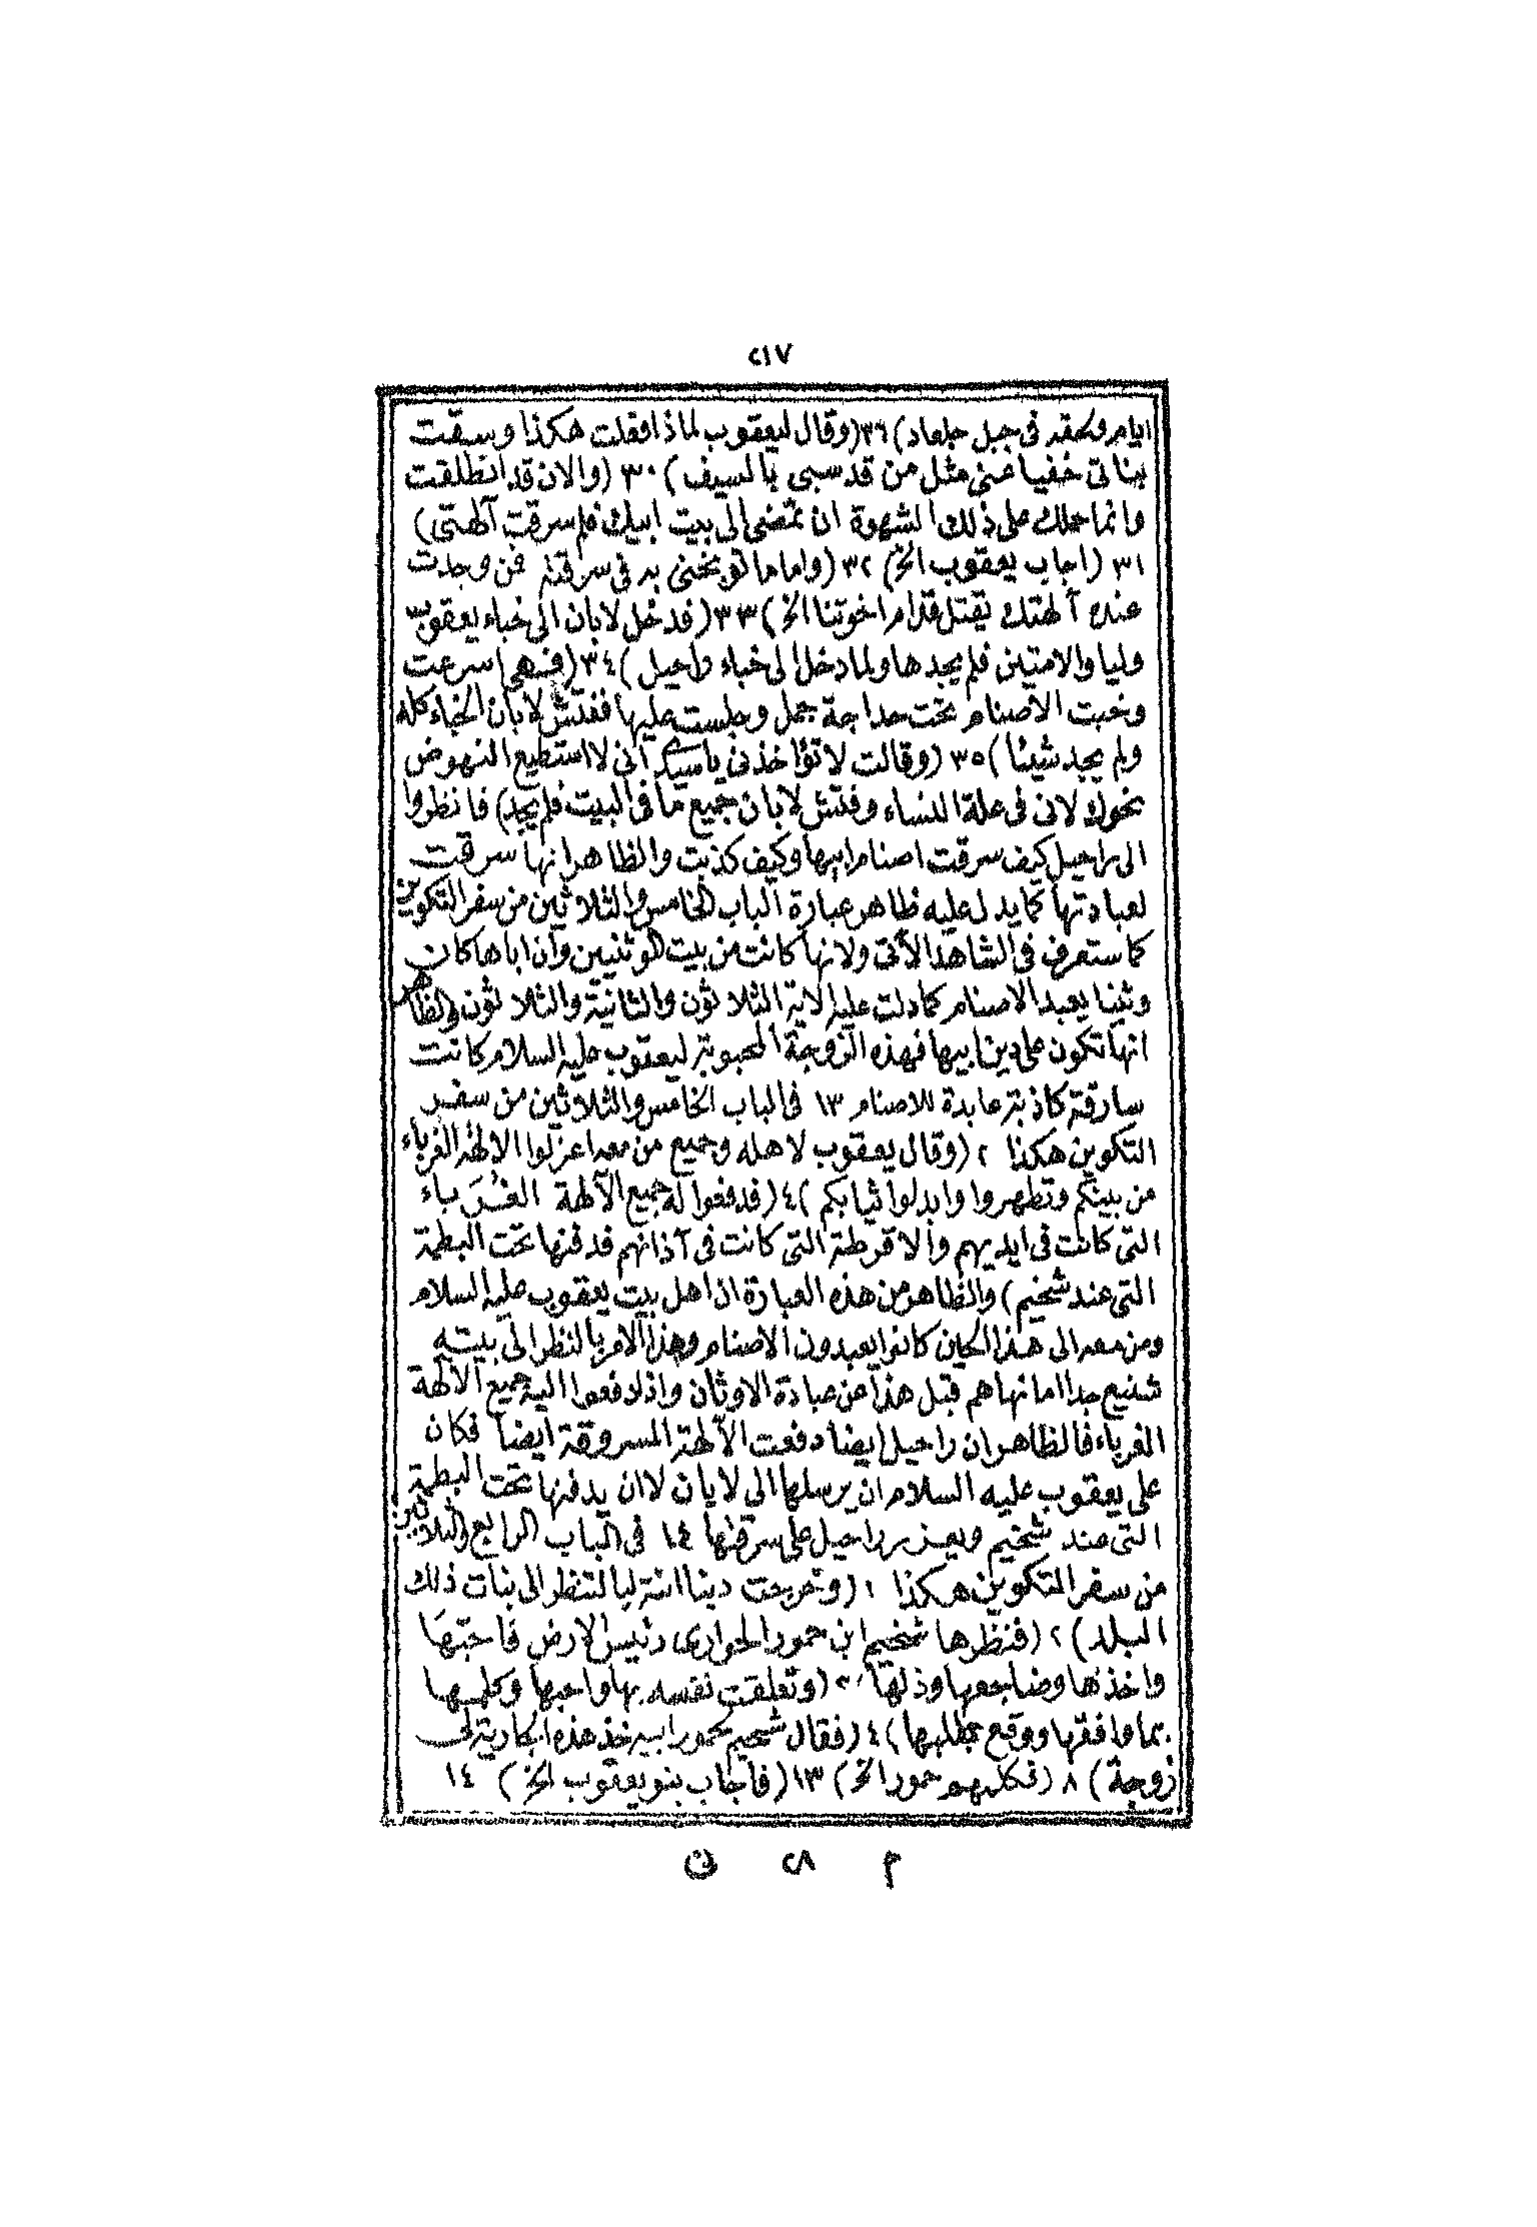 ٢١٧
ايام ولحقه فى جبل جلعاد) ٢٦ (وقال ليعقوب لماذا فعلت هكذا وسقت
بناتى خفيا عنى مثل من قد سبى بالسيف) ٣٠ (والان قد انطلقت
وانما حملك على ذلك الشهوة ان تمضى الى بيت ابيك فلم سرقت آلهتى)
٣١ (اجاب يعقوب الخ) ٣٢ (واما ما توبخنى به فى سرقته فمن وجدت
عنده آلهتك يقتل قدام اخوتنا الخ) ٣٣ (فدخل لابان الى خباء يعقوب
وليا والامتين فلم يجدها ولما دخل الى خباء راحيل) ٣٤ (فهى اسرعت
وخبت الاصنام تحت حداجة جمل وجلست عليها ففتش لابان الخباء كله
ولم يجد شيئا) ٣٥ (وقالت لا تؤاخذنى يا سيدى انى لا استطيع النهوض
نحوك لانى فى علة النساء وفتش لابان جميع ما فى البيت فلم يجد) فانظروا
الى راحيل كيف سرقت اصنام ابيها وكيف كذبت والظاهر انها سرقت
لعبادتها كما يدل عليه ظاهر عبارة الباب الخامس والثلاثين من سفر التكوين
كما ستعرف فى الشاهد الآتى ولانها كانت من بيت الوثنيين وان اباها كان
وثنيا يعبد الاصنام كما دلت عليه الاية الثلاثون والثانية والثلاثون والظاهر
انها تكون على دين ابيها فهذه الزوجة المحبوبة ليعقوب عليه السلام كانت
سارقة كاذبة عابدة للاصنام ١٣ فى الباب الخامس والثلاثين من سفر
التكوين هكذا ٢ (وقال يعقوب لاهله وجميع من معه اعزلوا الالهة الغرباء
من بينكم وتطهروا وابدلوا ثيابكم) ٤ (فدفعوا له جميع الآلهة الغُرَباء
التى كانت فى ايديهم والاقرطة التى كانت فى آذانهم فدفنها تحت البطمة
التى عند شخيم) والظاهر من هذه العبارة ان اهل بيت يعقوب عليه السلام
ومن معه الى هذا الحين كانوا يعبدون الاصنام وهذا الامر بالنظر الى بيته
شنيع جدا اما نهاهم قبل هذا عن عبادة الاوثان واذ دفعوا اليه جميع الآلهة
الغرباء فالظاهر ان راحيل ايضا دفعت الآلهة المسروقة ايضا فكان
على يعقوب عليه السلام ان يرسلها الى لابان لا ان يدفنها تحت البطمة
التى عند شخيم ويعذر راحيل على سرقتها ١٤ فى الباب الرابع والثلاثين
من سفر التكوين هكذا ١ (وخرجت دينا ابنة ليا لتنظر الى بنات ذلك
البلد) ٢ (فنظرها شخيم ابن حمور الحوارى رئيس الارض فاحبّهَا
واخذها وضاجعها وذلها) ٣ (وتعلقت نفسه بها واحبها وكلمها
بما وافقها ووقع بقلبها) ٤ (فقال شخيم لحمور ابيه خذ هذه الجارية لى
زوجة) ٨ (فكلمهم حمور الخ) ١٣ (فاجاب بنو يعقوب الخ) ١٤
م ٢٨ ن